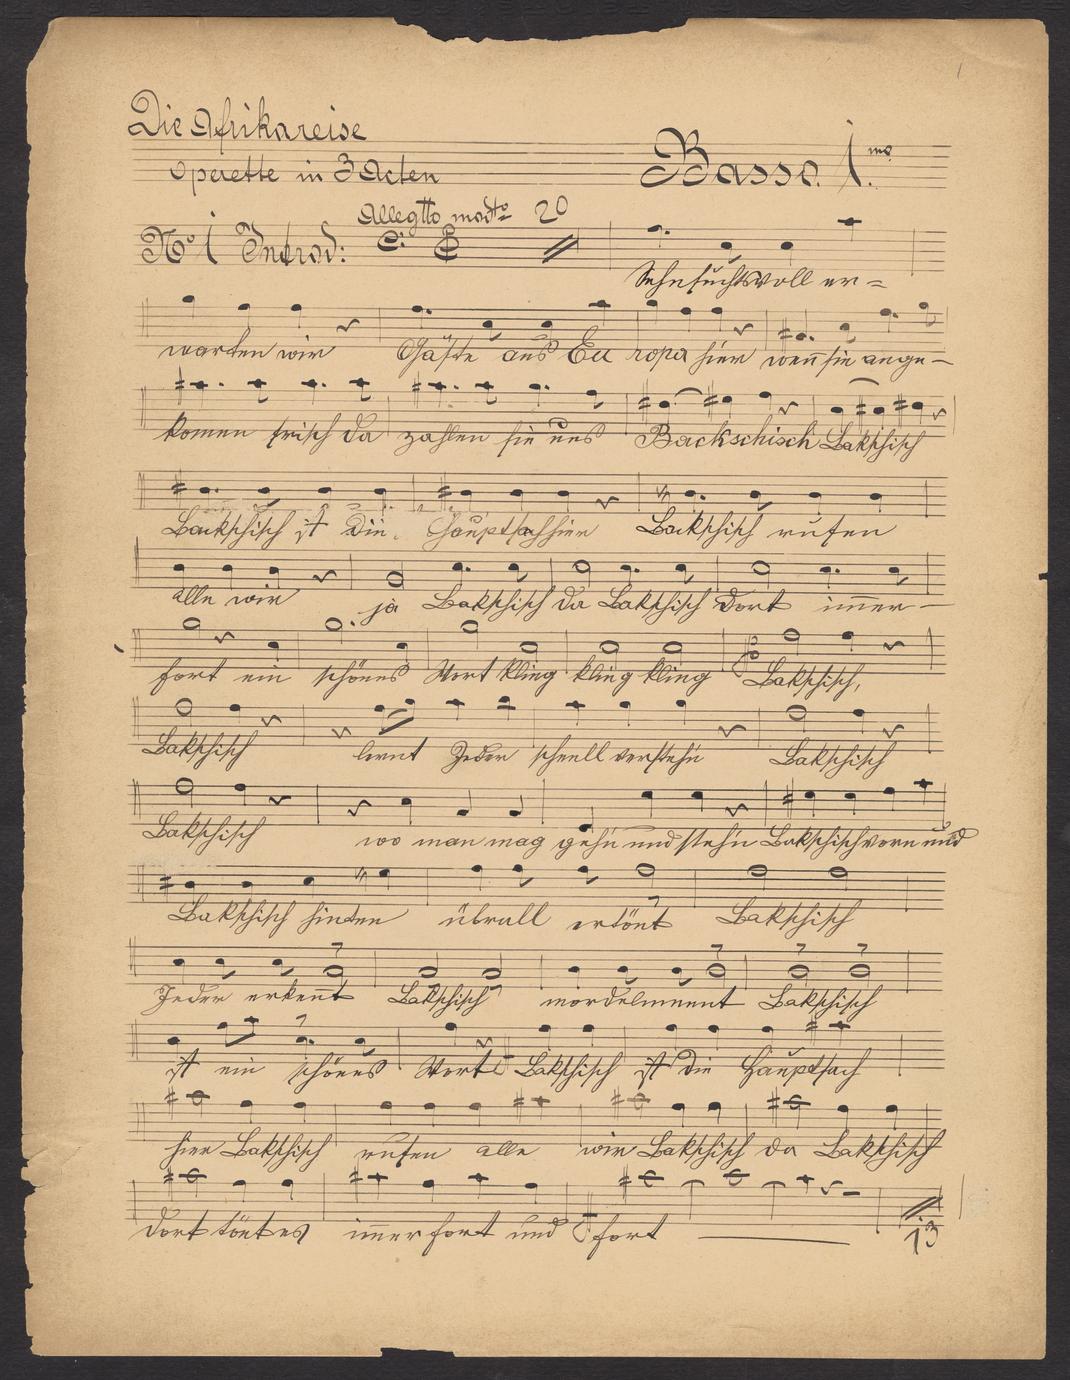 Die Afrikareise
Operette in 3 Acten
Basso. 1.mo
Allegtto modto 20
No 1 Introd:
Sehnsuchtsvoll er=
warten wir Gäste aus Eu ropa hier wenn sie ange-
komen frisch da zahlen sie uns Backschisch Bakschisch
Backschisch ist die Hauptsach hier Backschisch rufen
alle wir ja Bakschisch da Bakschisch dort immer-
fort ein schönes Wort kling kling kling Bakschisch,
Bakschisch lernt Jeder schnell versteh'n Bakschisch
Bakschisch wo man mag geh'n und steh'n Bakschisch vorn und
Bakschisch hinten übrall ertönt Bakschisch
Jeder erkennt Bakschisch Bakschisch
ist ein schönes Wort Bakschisch ist die Hauptsach
hier Bakschisch rufen alle wir Bakschisch da Bakschisch
dort tönt es immerfort und fort
13